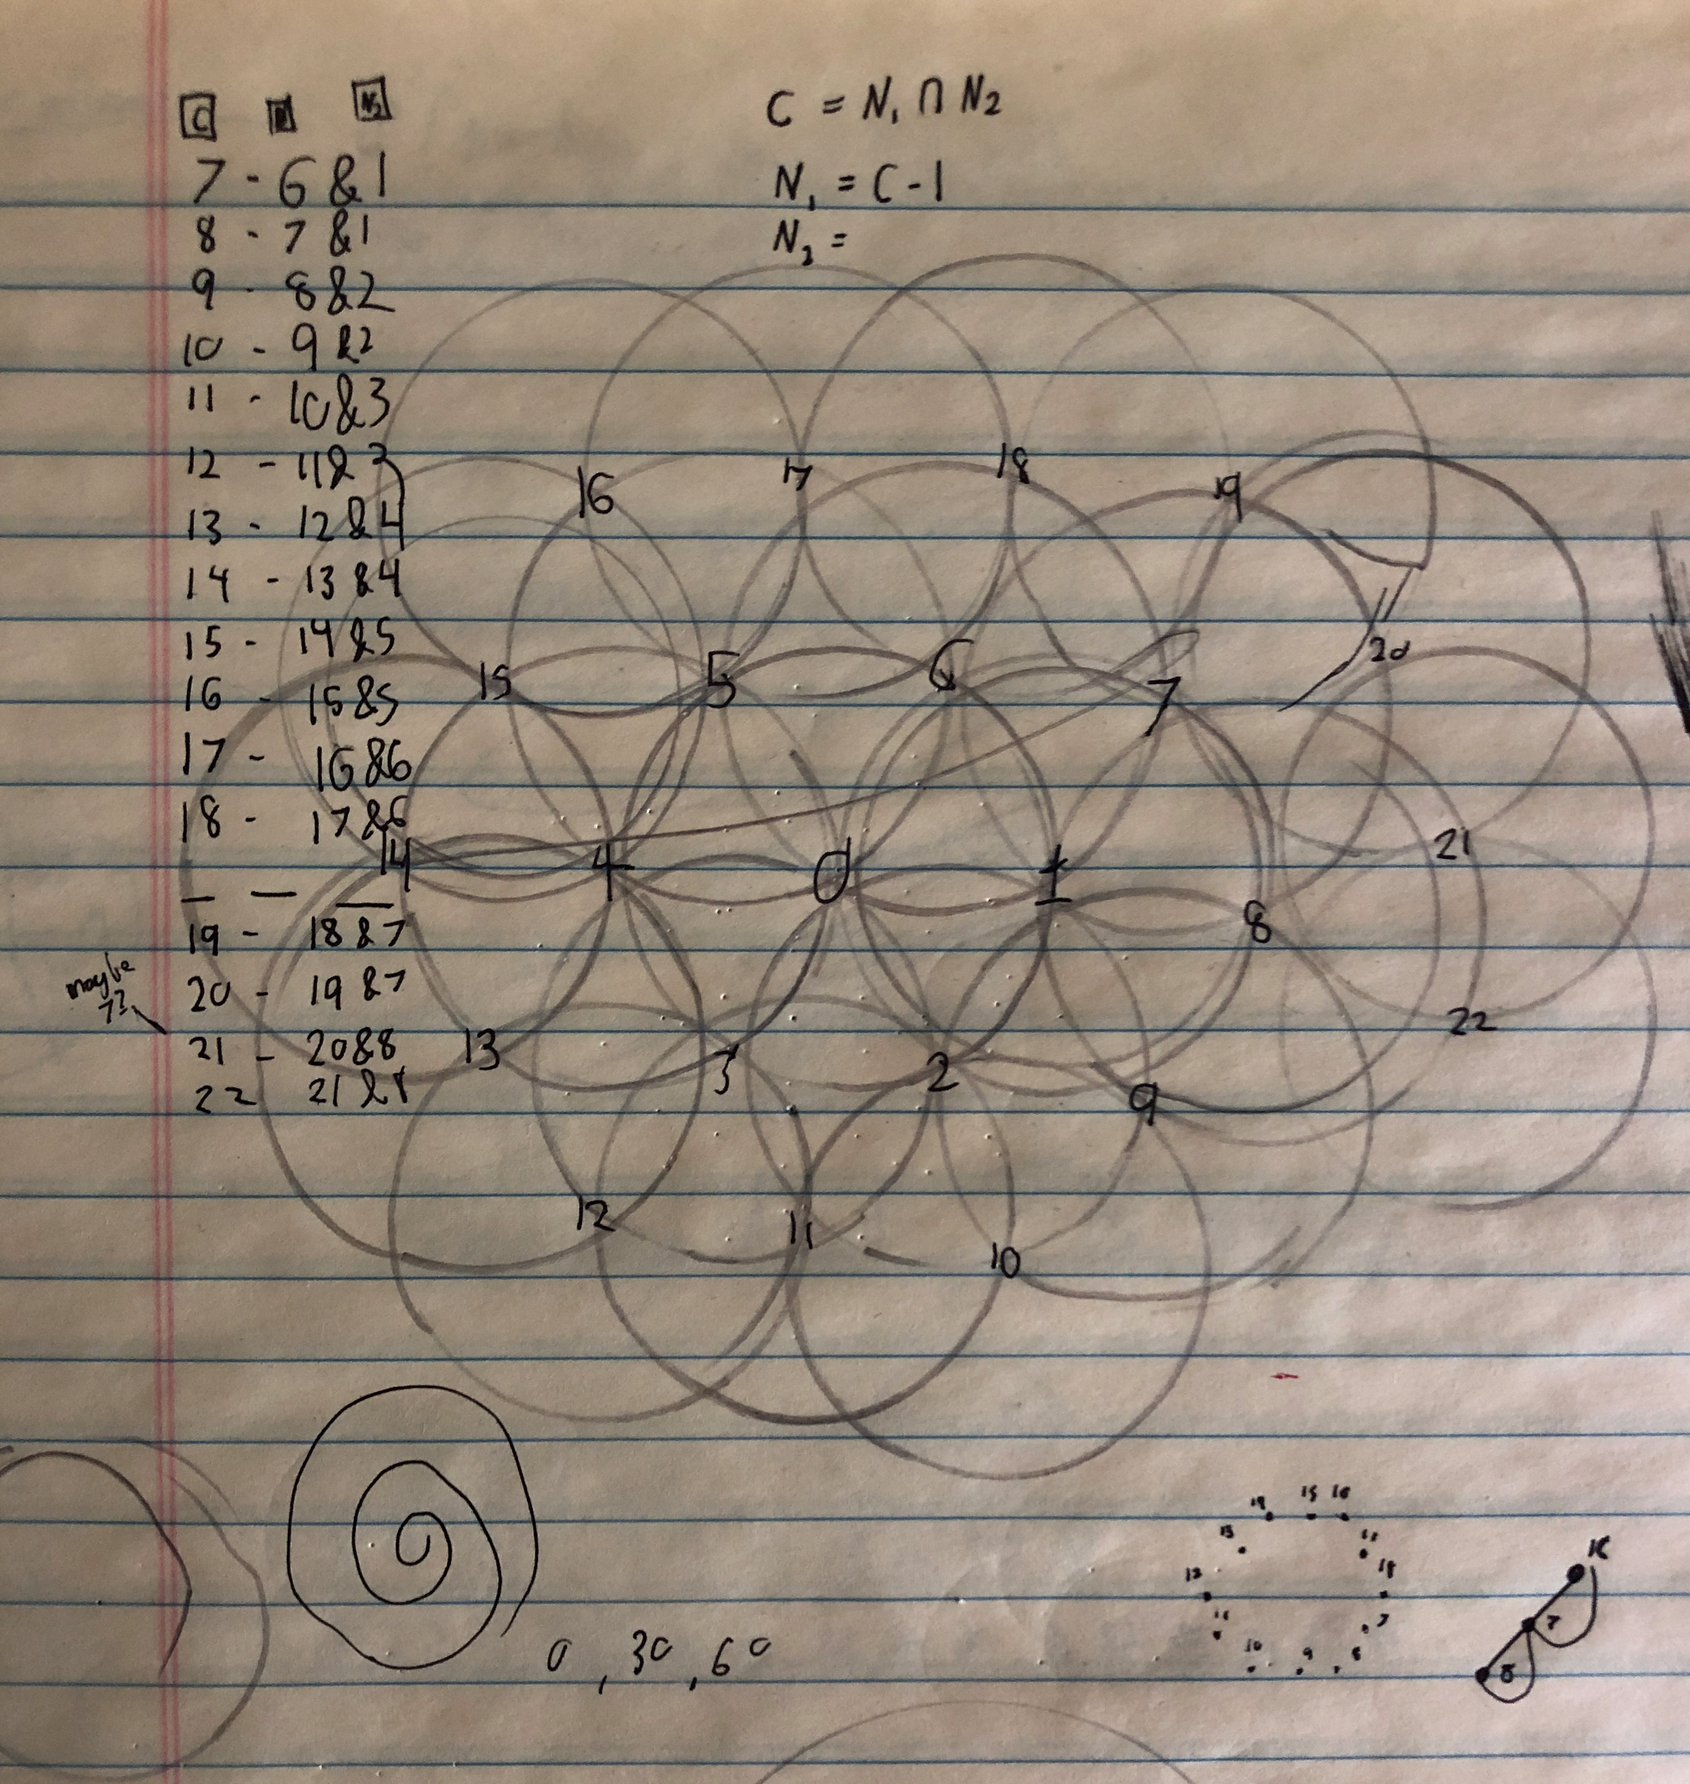 C N₂
7 - 6 & 1
8 - 7 & 1
9 - 8 & 2
10 - 9 & 2
11 - 10 & 3
12 - 11 & 3
13 - 12 & 4
14 - 13 & 4
15 - 14 & 5
16 - 15 & 5
17 - 16 & 6
18 - 17 & 6
19 - 18 & 7
20 - 19 & 7
maybe 7?
21 - 20 & 8
22 21 & 8
C = N₁ ∩ N₂
N₁ = C - 1
N₂ =
16 17 18 19
20
15 5 6 7
14 4 0 1 8 21
22
13 3 2 9
12 11 10
0, 30, 60
15 16
13
18
12
7
10 9 8
7
8